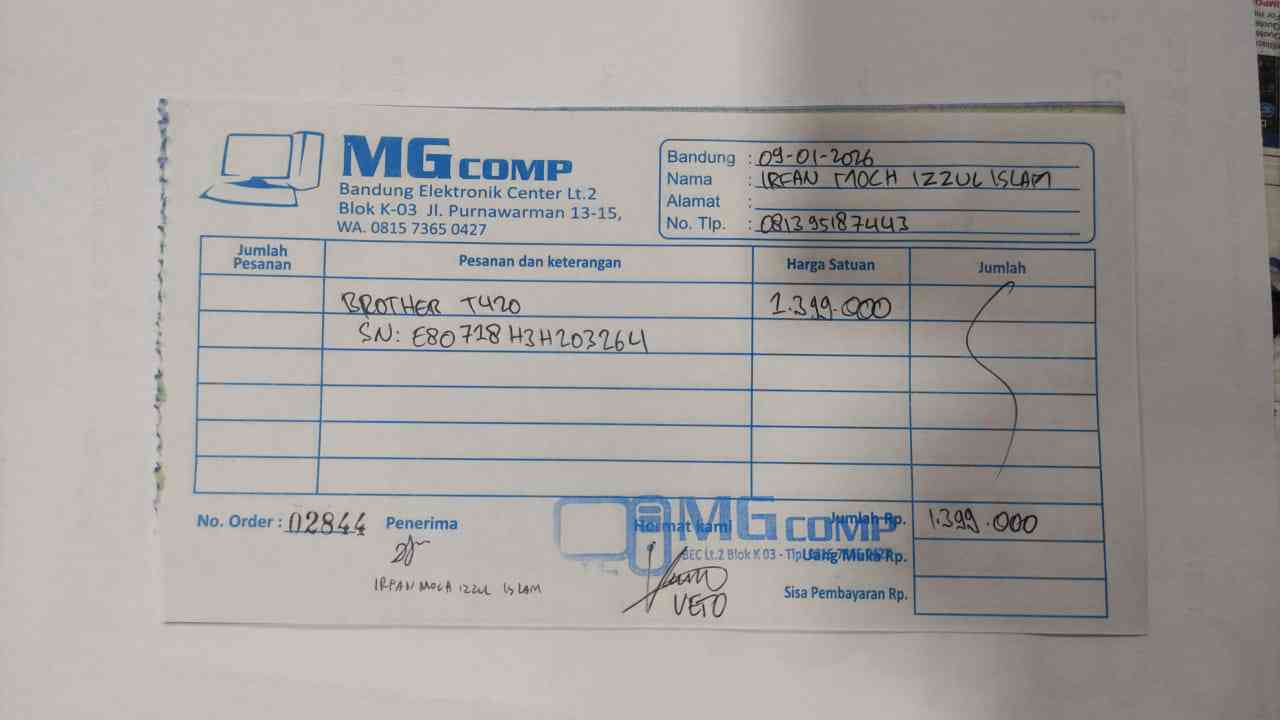 MG COMP
Bandung Elektronik Center Lt.2
Blok K-03 Jl. Purnawarman 13-15,
WA. 0815 7365 0427
Bandung : 09-01-2026
Nama : IRFAN MOCH IZZUL ISLAM
Alamat :
No. Tlp. : 081395187443
Jumlah Pesanan Pesanan dan keterangan Harga Satuan Jumlah
BROTHER T420 1.399.000
SN: E80718H3H203264
No. Order : 02844 Penerima Hormat kami Jumlah Rp. 1.399.000
MG COMP
BEC Lt.2 Blok K 03 - Tlp.
Uang Muka Rp.
Sisa Pembayaran Rp.
IRPAN MOCH IZZUL ISLAM
VETO